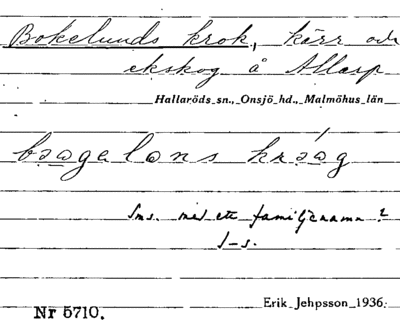 Bokelunds krok, kärr och
ekskog å Allarp
Hallaröds sn., Onsjö hd., Malmöhus län
Sms. med ett familjenamn?
J-s.
Erik Jehpsson 1936.
Nr 5710.